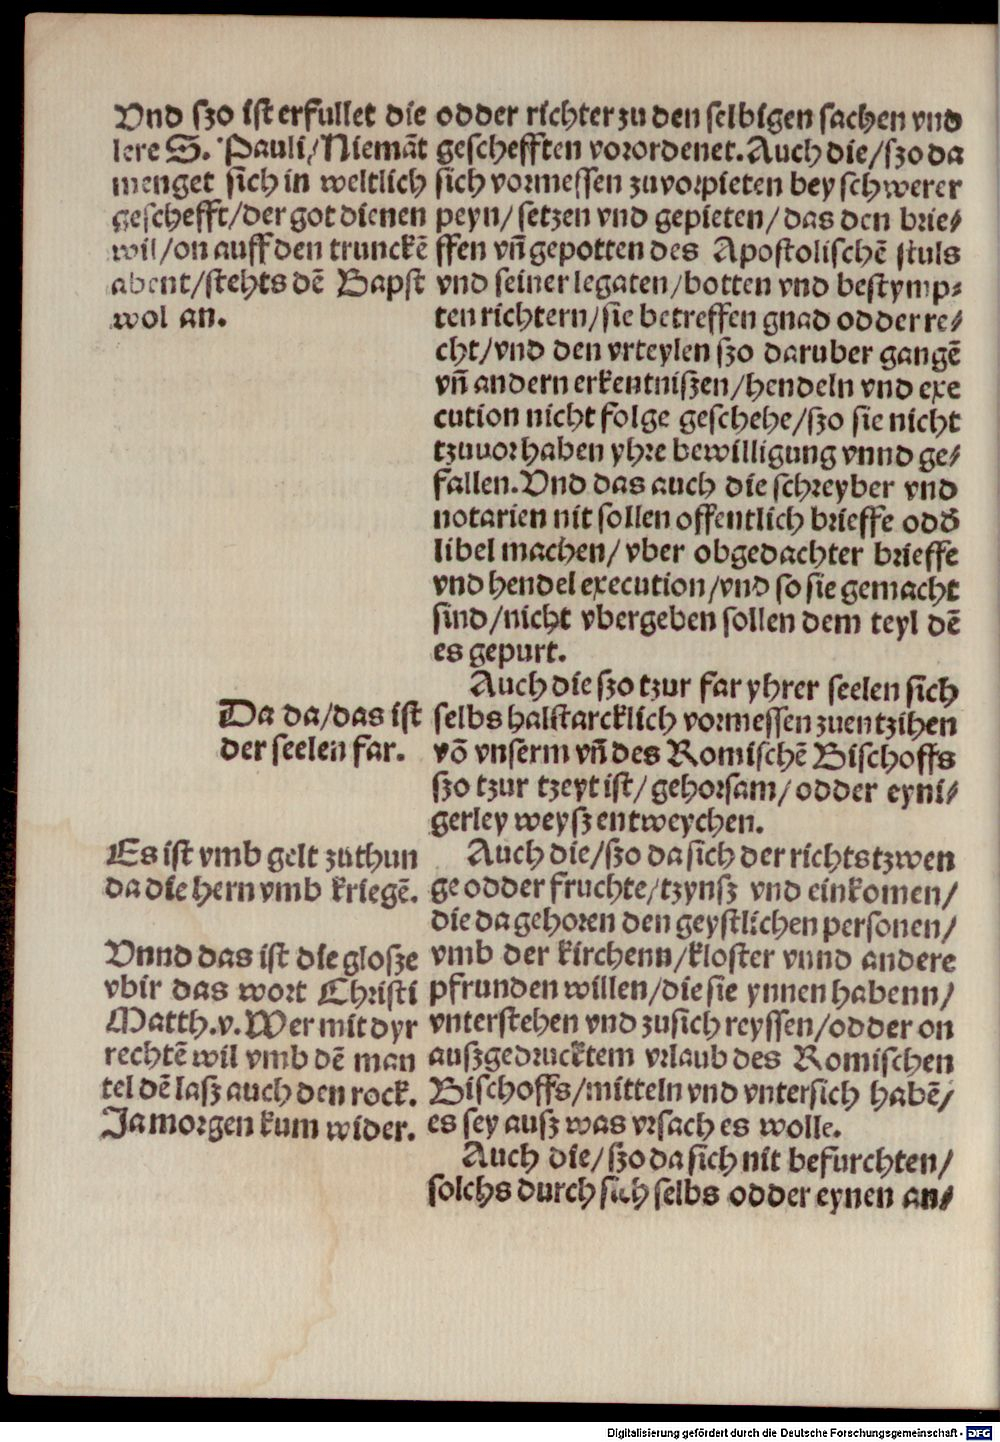 Vnd ſzo iſt erfullet die
lere S. Pauli/Niemāt
menget ſich in weltlich
geſchefft/der got dienen
wil/on auff den trunckē
abent/ſtehts dē Bapſt
wol an.
Da da/das iſt
der ſeelen far.
Es iſt vmb gelt zuthun
da die hern vmb kriegē.
Vnnd das iſt die gloſze
vbir das wort Chriſti
Matth.v. Wer mit dyr
rechtē wil vmb dē man
tel dē laſz auch den rock.
Ja morgen kum wider.
odder richter zu den ſelbigen ſachen vnd
geſchefften vorordenet. Auch die/ſzo da
ſich vormeſſen zuvorpieten bey ſchwerer
peyn/ſetzen vnd gepieten/das den brie⸗
ffen vn̄ gepotten des Apoſtoliſchē ſtuls
vnd ſeiner legaten/botten vnd beſtymp⸗
ten richtern/ſie betreffen gnad odder re⸗
cht/vnd den vrteylen ſzo daruber gangē
vn̄ andern erkentniſzen/hendeln vnd exe
cution nicht folge geſchehe/ſzo ſie nicht
tzuuor haben yhre bewilligung vnnd ge⸗
fallen. Vnd das auch die ſchreyber vnd
notarien nit ſollen offentlich brieffe odd̄
libel machen/vber obgedachter brieffe
vnd hendel execution/vnd ſo ſie gemacht
ſind/nicht vbergeben ſollen dem teyl dē
es gepurt.
Auch die ſzo tzur far yhrer ſeelen ſich
ſelbs halſtarcklich vormeſſen zuentzihen
vō vnſerm vn̄ des Romiſchē Biſchoffs
ſzo tzur tzeyt iſt/gehorſam/odder eyni⸗
gerley weyſz entweychen.
Auch die/ſzo da ſich der richts tzwen
ge odder fruchte/tzynſz vnd einkomen/
die da gehoren den geyſtlichen perſonen/
vmb der kirchenn/kloſter vnnd andere
pfrunden willen/die ſie ynnen habenn/
vnterſtehen vnd zuſich reyſſen/odder on
auſzgedrucktem vrlaub des Romiſchen
Biſchoffs/mitteln vnd vnterſich habē/
es ſey auſz was vrſach es wolle.
Auch die/ſzo da ſich nit befurchten/
ſolchs durch ſich ſelbs odder eynen an⸗
Digitalisierung gefördert durch die Deutsche Forschungsgemeinschaft - DFG